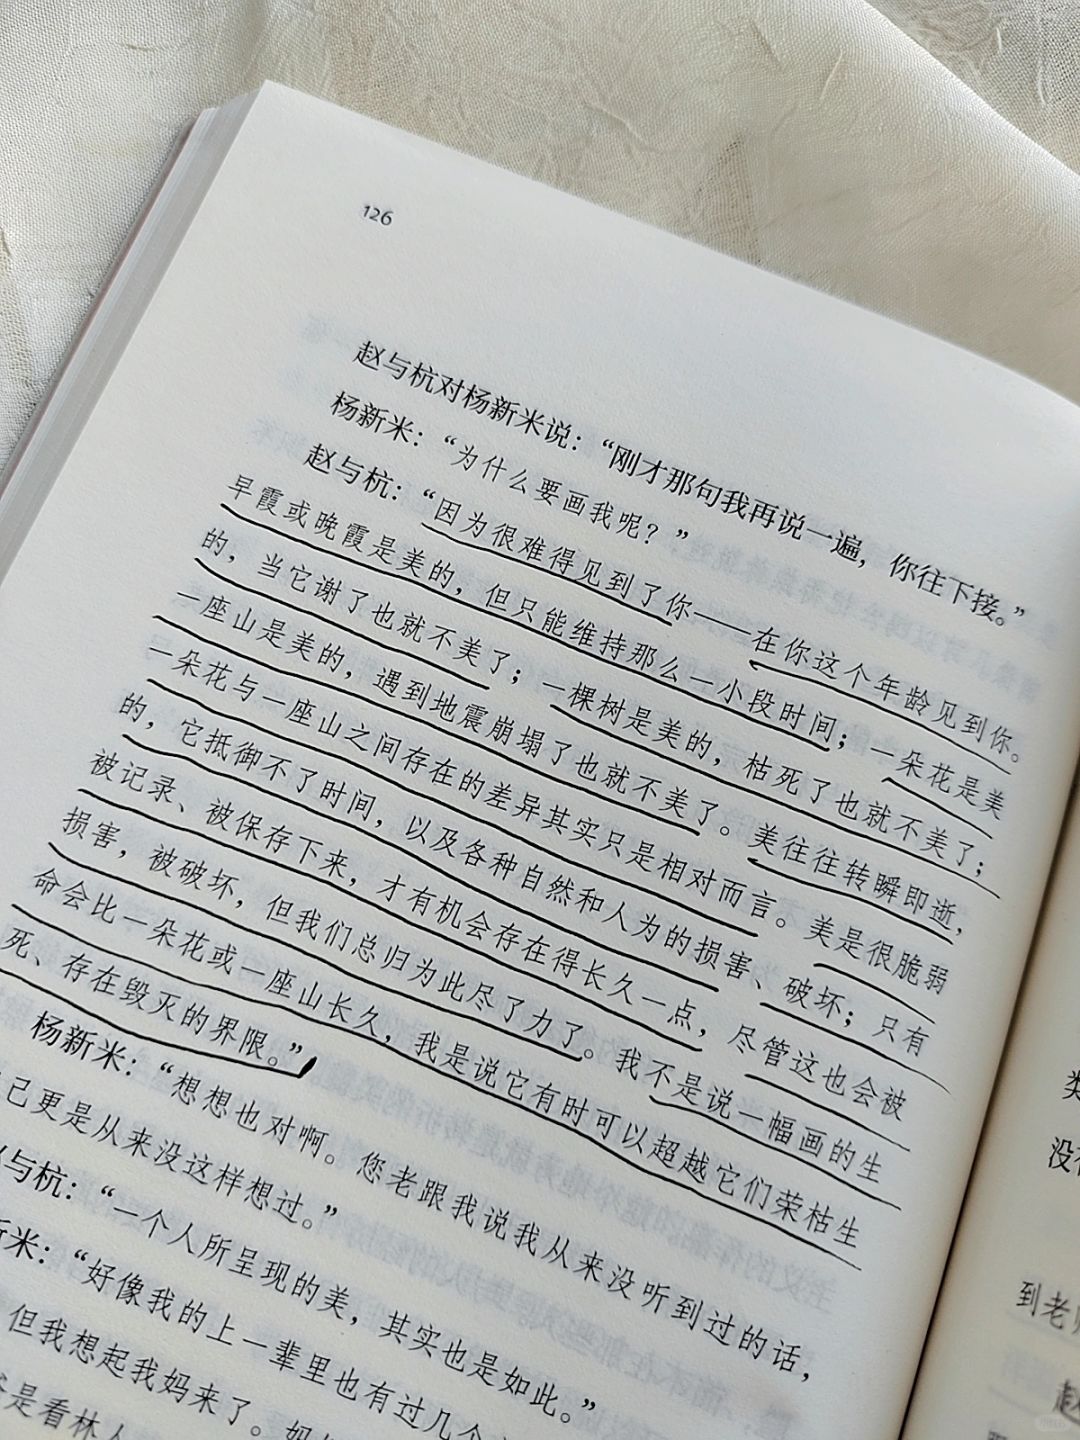 126
赵与杭对杨新米说：“刚才那句我再说一遍，你往下接。”
杨新米：“为什么要画我呢？”
赵与杭：“因为很难得见到了你——在你这个年龄见到你。
早霞或晚霞是美的，但只能维持那么一小段时间；一朵花是美
的，当它谢了也就不美了；一棵树是美的，枯死了也就不美了；
一座山是美的，遇到地震崩塌了也就不美了。美往往转瞬即逝，
一朵花与一座山之间存在的差异其实只是相对而言。美是很脆弱
的，它抵御不了时间，以及各种自然和人为的损害、破坏；只有
被记录、被保存下来，才有机会存在得长久一点，尽管这也会被
损害，被破坏，但我们总归为此尽了力了。我不是说一幅画的生
命会比一朵花或一座山长久，我是说它有时可以超越它们荣枯生
死、存在毁灭的界限。”
杨新米：“想想也对啊。您老跟我说我从来没听到过的话，
己更是从来没这样想过。”
与杭：“一个人所呈现的美，其实也是如此。”
新米：“好像我的上一辈里也有过几个
但我想起我妈来了。
是看林人
类
没
到老